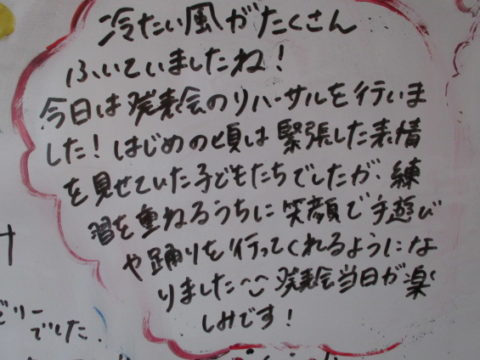 冷たい風がたくさん
ふいていましたね!
今日は発表会のリハーサルを行いま
した!はじめの頃は緊張した表情
を見せていた子どもたちでしたが、練
習を重ねるうちに笑顔で手遊び
や踊りを行ってくれるようにな
りました^^発表会当日が楽
しみです!
でした.